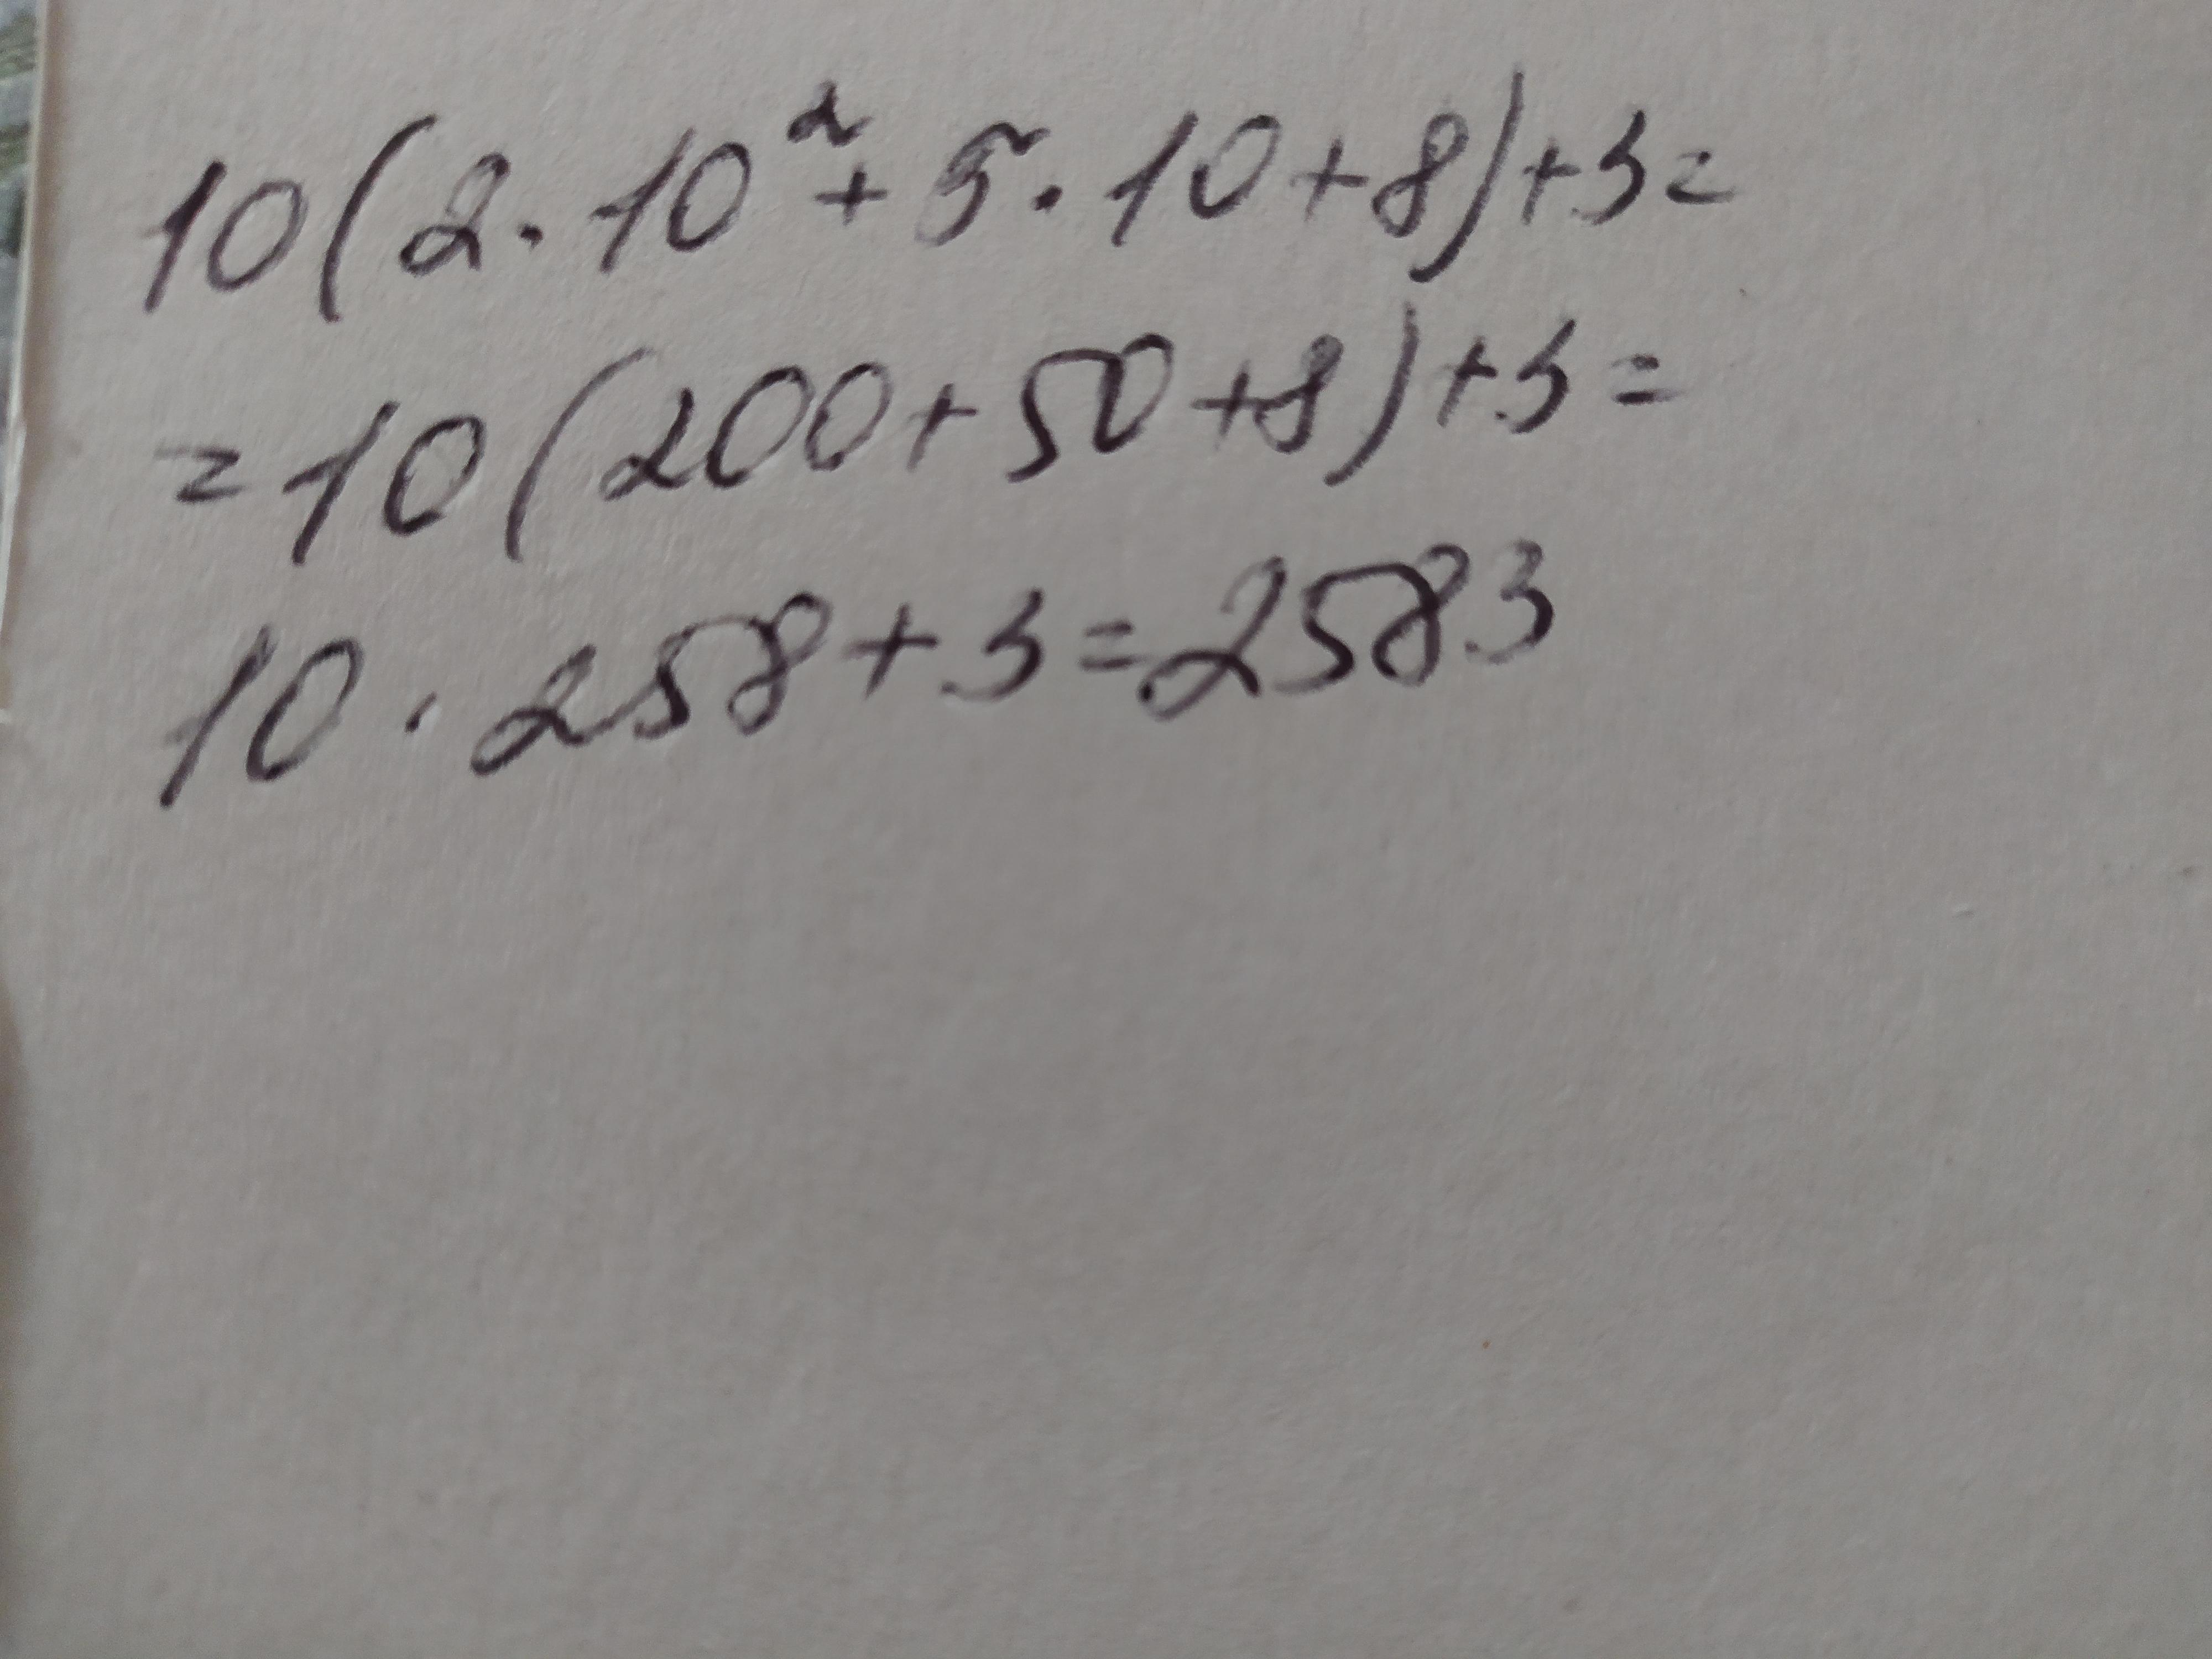 10(2·10²+5·10+8)+3=
=10(200+50+8)+3=
10·258+3=2583